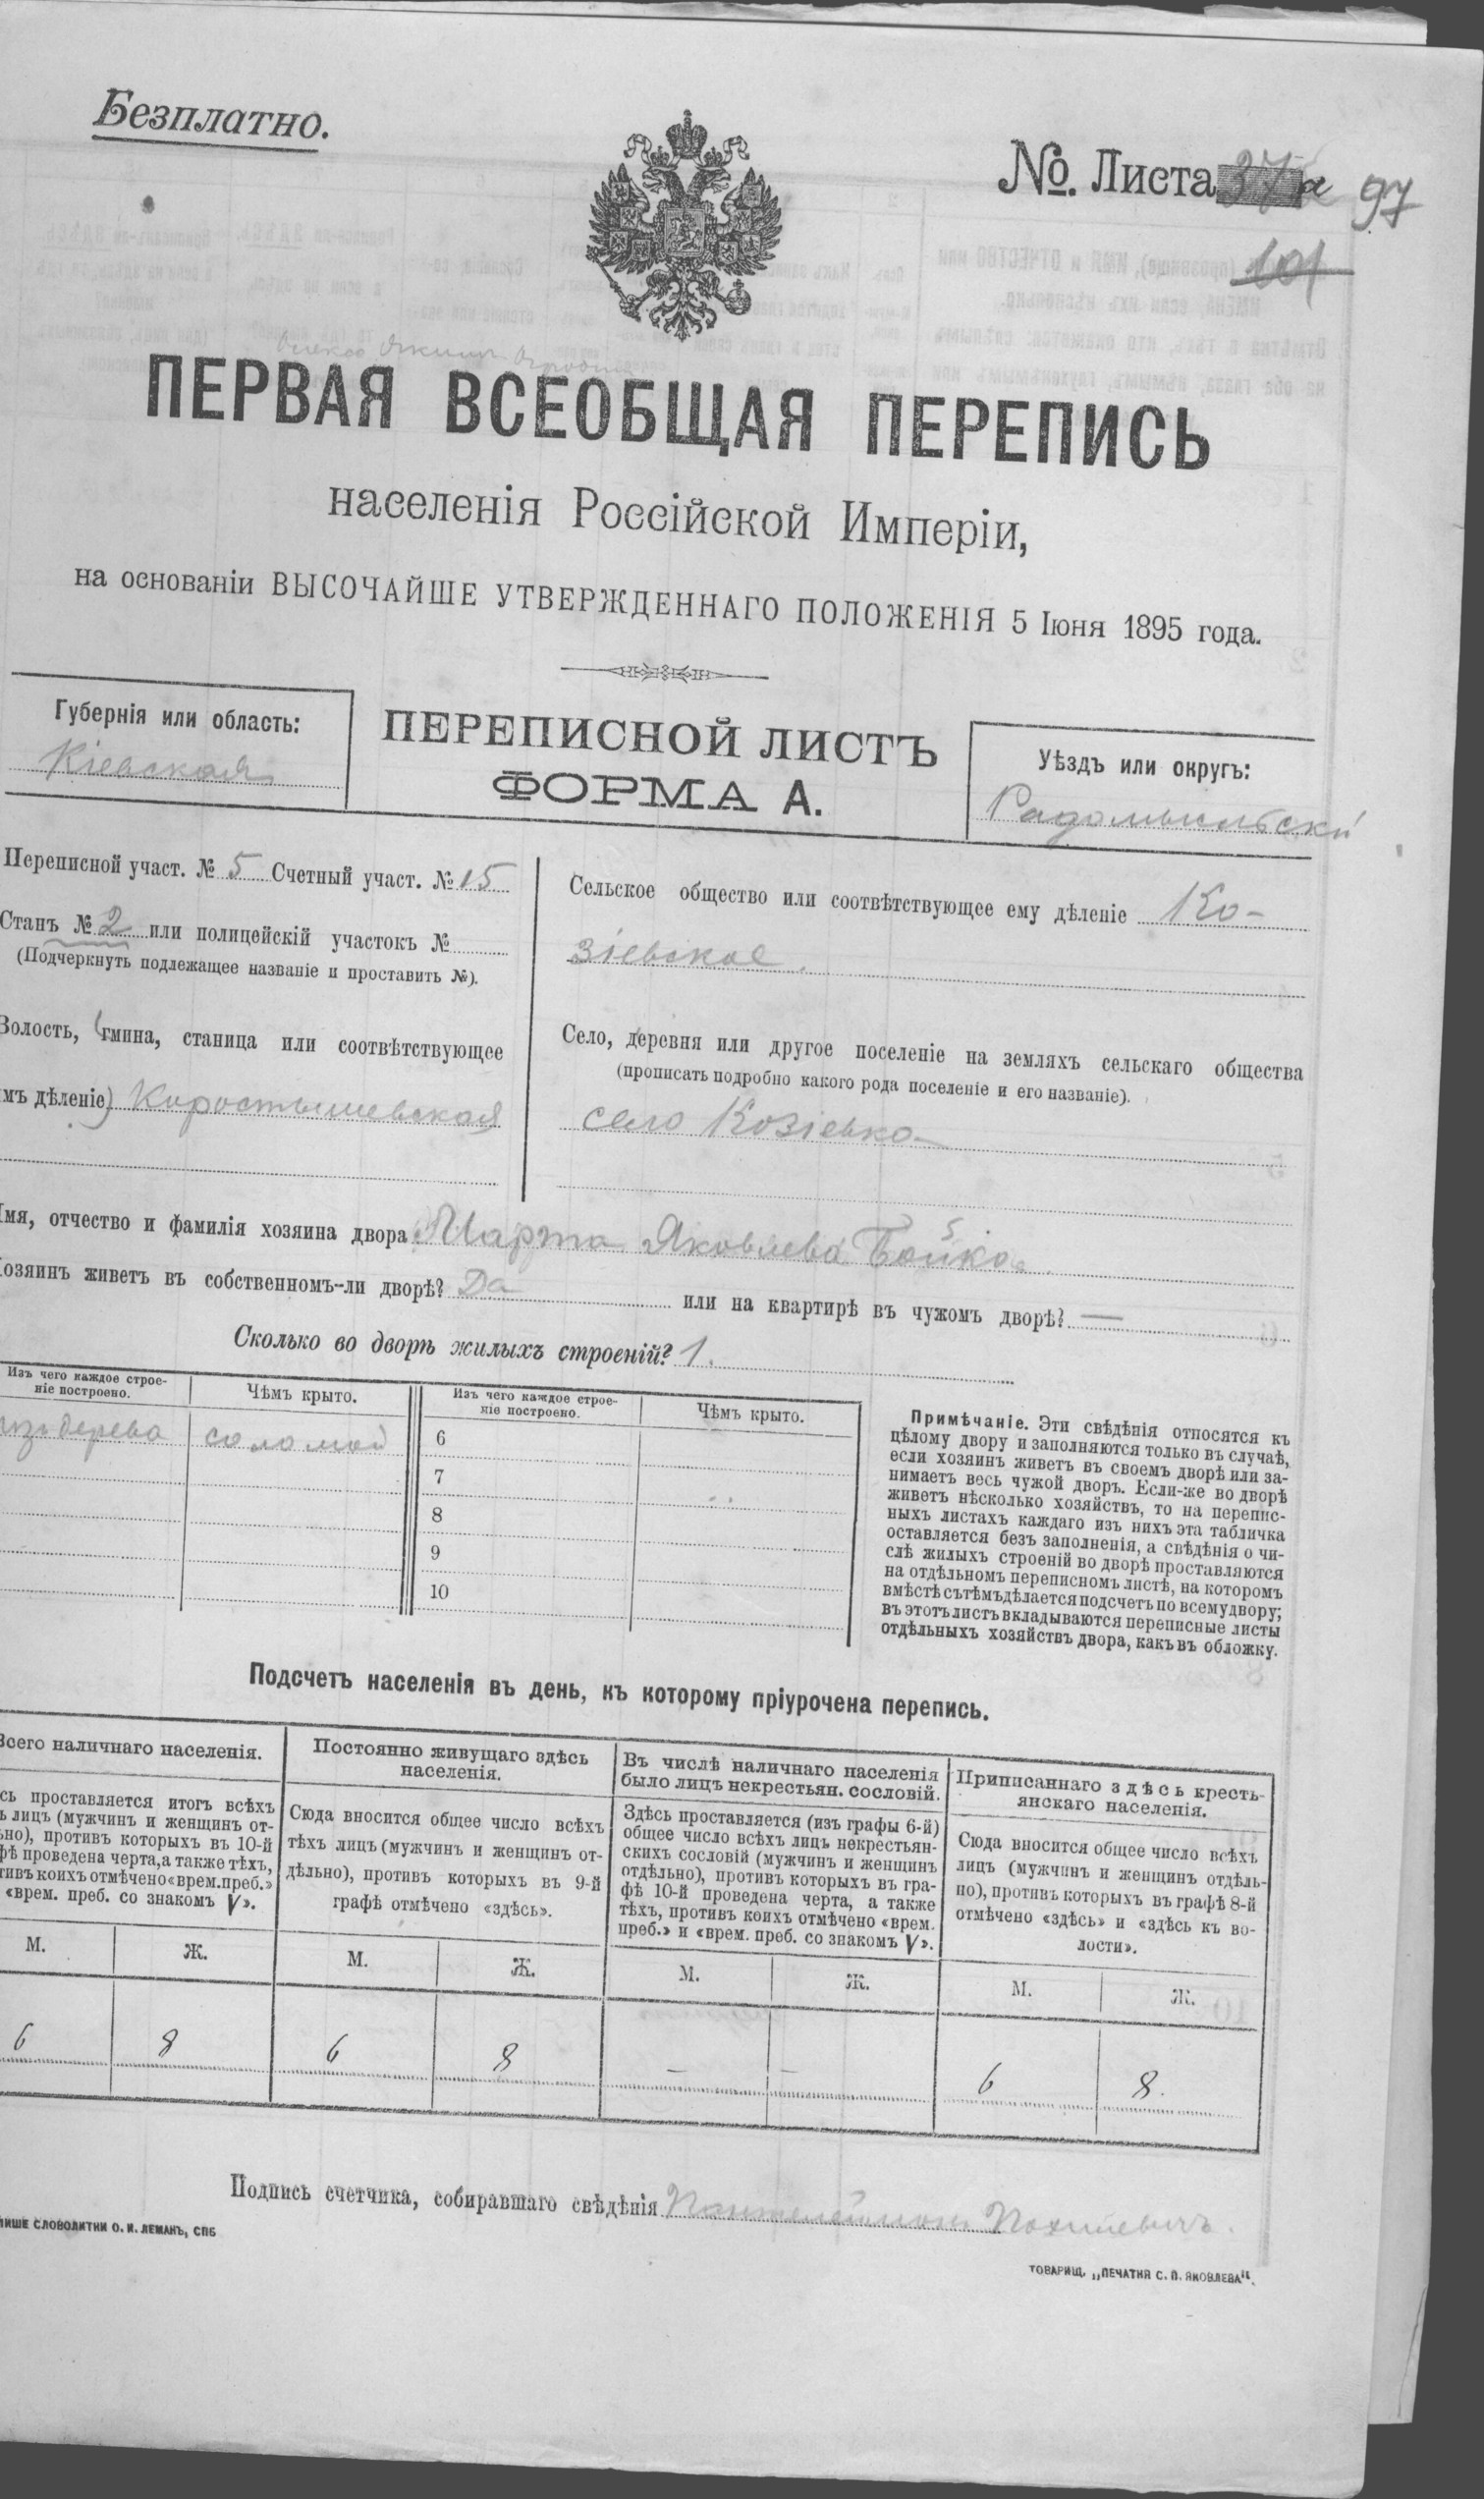 Безплатно.
№. Листа 37а 97
101
ПЕРВАЯ ВСЕОБЩАЯ ПЕРЕПИСЬ
населенія Россійской Имперіи,
на основаніи ВЫСОЧАЙШЕ УТВЕРЖДЕННАГО ПОЛОЖЕНІЯ 5 Іюня 1895 года.
Губернія или область:
Кіевская
ПЕРЕПИСНОЙ ЛИСТЪ
ФОРМА А.
Уѣздъ или округъ:
Радомысльскій
Переписной участ. № 5 Счетный участ. № 15
Станъ № 2 или полицейскій участокъ №
(Подчеркнуть подлежащее названіе и проставить №).
Волость, (гмина, станица или соотвѣтствующее
имъ дѣленіе) Коростышевская
Сельское общество или соотвѣтствующее ему дѣленіе Ко-
зіевское.
Село, деревня или другое поселеніе на земляхъ сельскаго общества
(прописать подробно какого рода поселеніе и его названіе).
село Козіевка
Имя, отчество и фамилія хозяина двора Марта Яковлева Бойко 5
Хозяинъ живетъ въ собственномъ-ли дворѣ? Да или на квартирѣ въ чужомъ дворѣ? —
Сколько во дворѣ жилыхъ строеній? 1.
Изъ чего каждое строе-
ніе построено.
Чѣмъ крыто.
Изъ чего каждое строе-
ніе построено.
Чѣмъ крыто.
изъ дерева соломой
6
7
8
9
10
Примѣчаніе. Эти свѣдѣнія относятся къ
цѣлому двору и заполняются только въ случаѣ,
если хозяинъ живетъ въ своемъ дворѣ или за-
нимаетъ весь чужой дворъ. Если-же во дворѣ
живетъ нѣсколько хозяйствъ, то на перепис-
ныхъ листахъ каждаго изъ нихъ эта табличка
оставляется безъ заполненія, а свѣдѣнія о чи-
слѣ жилыхъ строеній во дворѣ проставляются
на отдѣльномъ переписномъ листѣ, на которомъ
вмѣстѣ съ тѣмъ дѣлается подсчетъ по всему двору;
въ этотъ листъ вкладываются переписные листы
отдѣльныхъ хозяйствъ двора, какъ въ обложку.
Подсчетъ населенія въ день, къ которому пріурочена перепись.
Всего наличнаго населенія.
сь проставляется итогъ всѣхъ
ь лицъ (мужчинъ и женщинъ от-
ьно), противъ которыхъ въ 10-й
фѣ проведена черта, а также тѣхъ,
тивъ коихъ отмѣчено «врем. преб.»
«врем. преб. со знакомъ V».
Постоянно живущаго здѣсь
населенія.
Сюда вносится общее число всѣхъ
тѣхъ лицъ (мужчинъ и женщинъ от-
дѣльно), противъ которыхъ въ 9-й
графѣ отмѣчено «здѣсь».
Въ числѣ наличнаго населенія
было лицъ некрестьян. сословій.
Здѣсь проставляется (изъ графы 6-й)
общее число всѣхъ лицъ некрестьян-
скихъ сословій (мужчинъ и женщинъ
отдѣльно), противъ которыхъ въ гра-
фѣ 10-й проведена черта, а также
тѣхъ, противъ коихъ отмѣчено «врем.
преб.» и «врем. преб. со знакомъ V».
Приписаннаго здѣсь кресть-
янскаго населенія.
Сюда вносится общее число всѣхъ
лицъ (мужчинъ и женщинъ отдѣль-
но), противъ которыхъ въ графѣ 8-й
отмѣчено «здѣсь» и «здѣсь къ во-
лости».
М. Ж. М. Ж. М. Ж. М. Ж.
6 8 6 8 — — 6 8.
Подпись счетчика, собиравшаго свѣдѣнія Пантелеймонъ Похилевичъ.
ЛИШЕ СЛОВОЛИТНИ О. И. ЛЕМАНЪ, СПБ
ТОВАРИЩ. „ПЕЧАТНЯ С. П. ЯКОВЛЕВА".